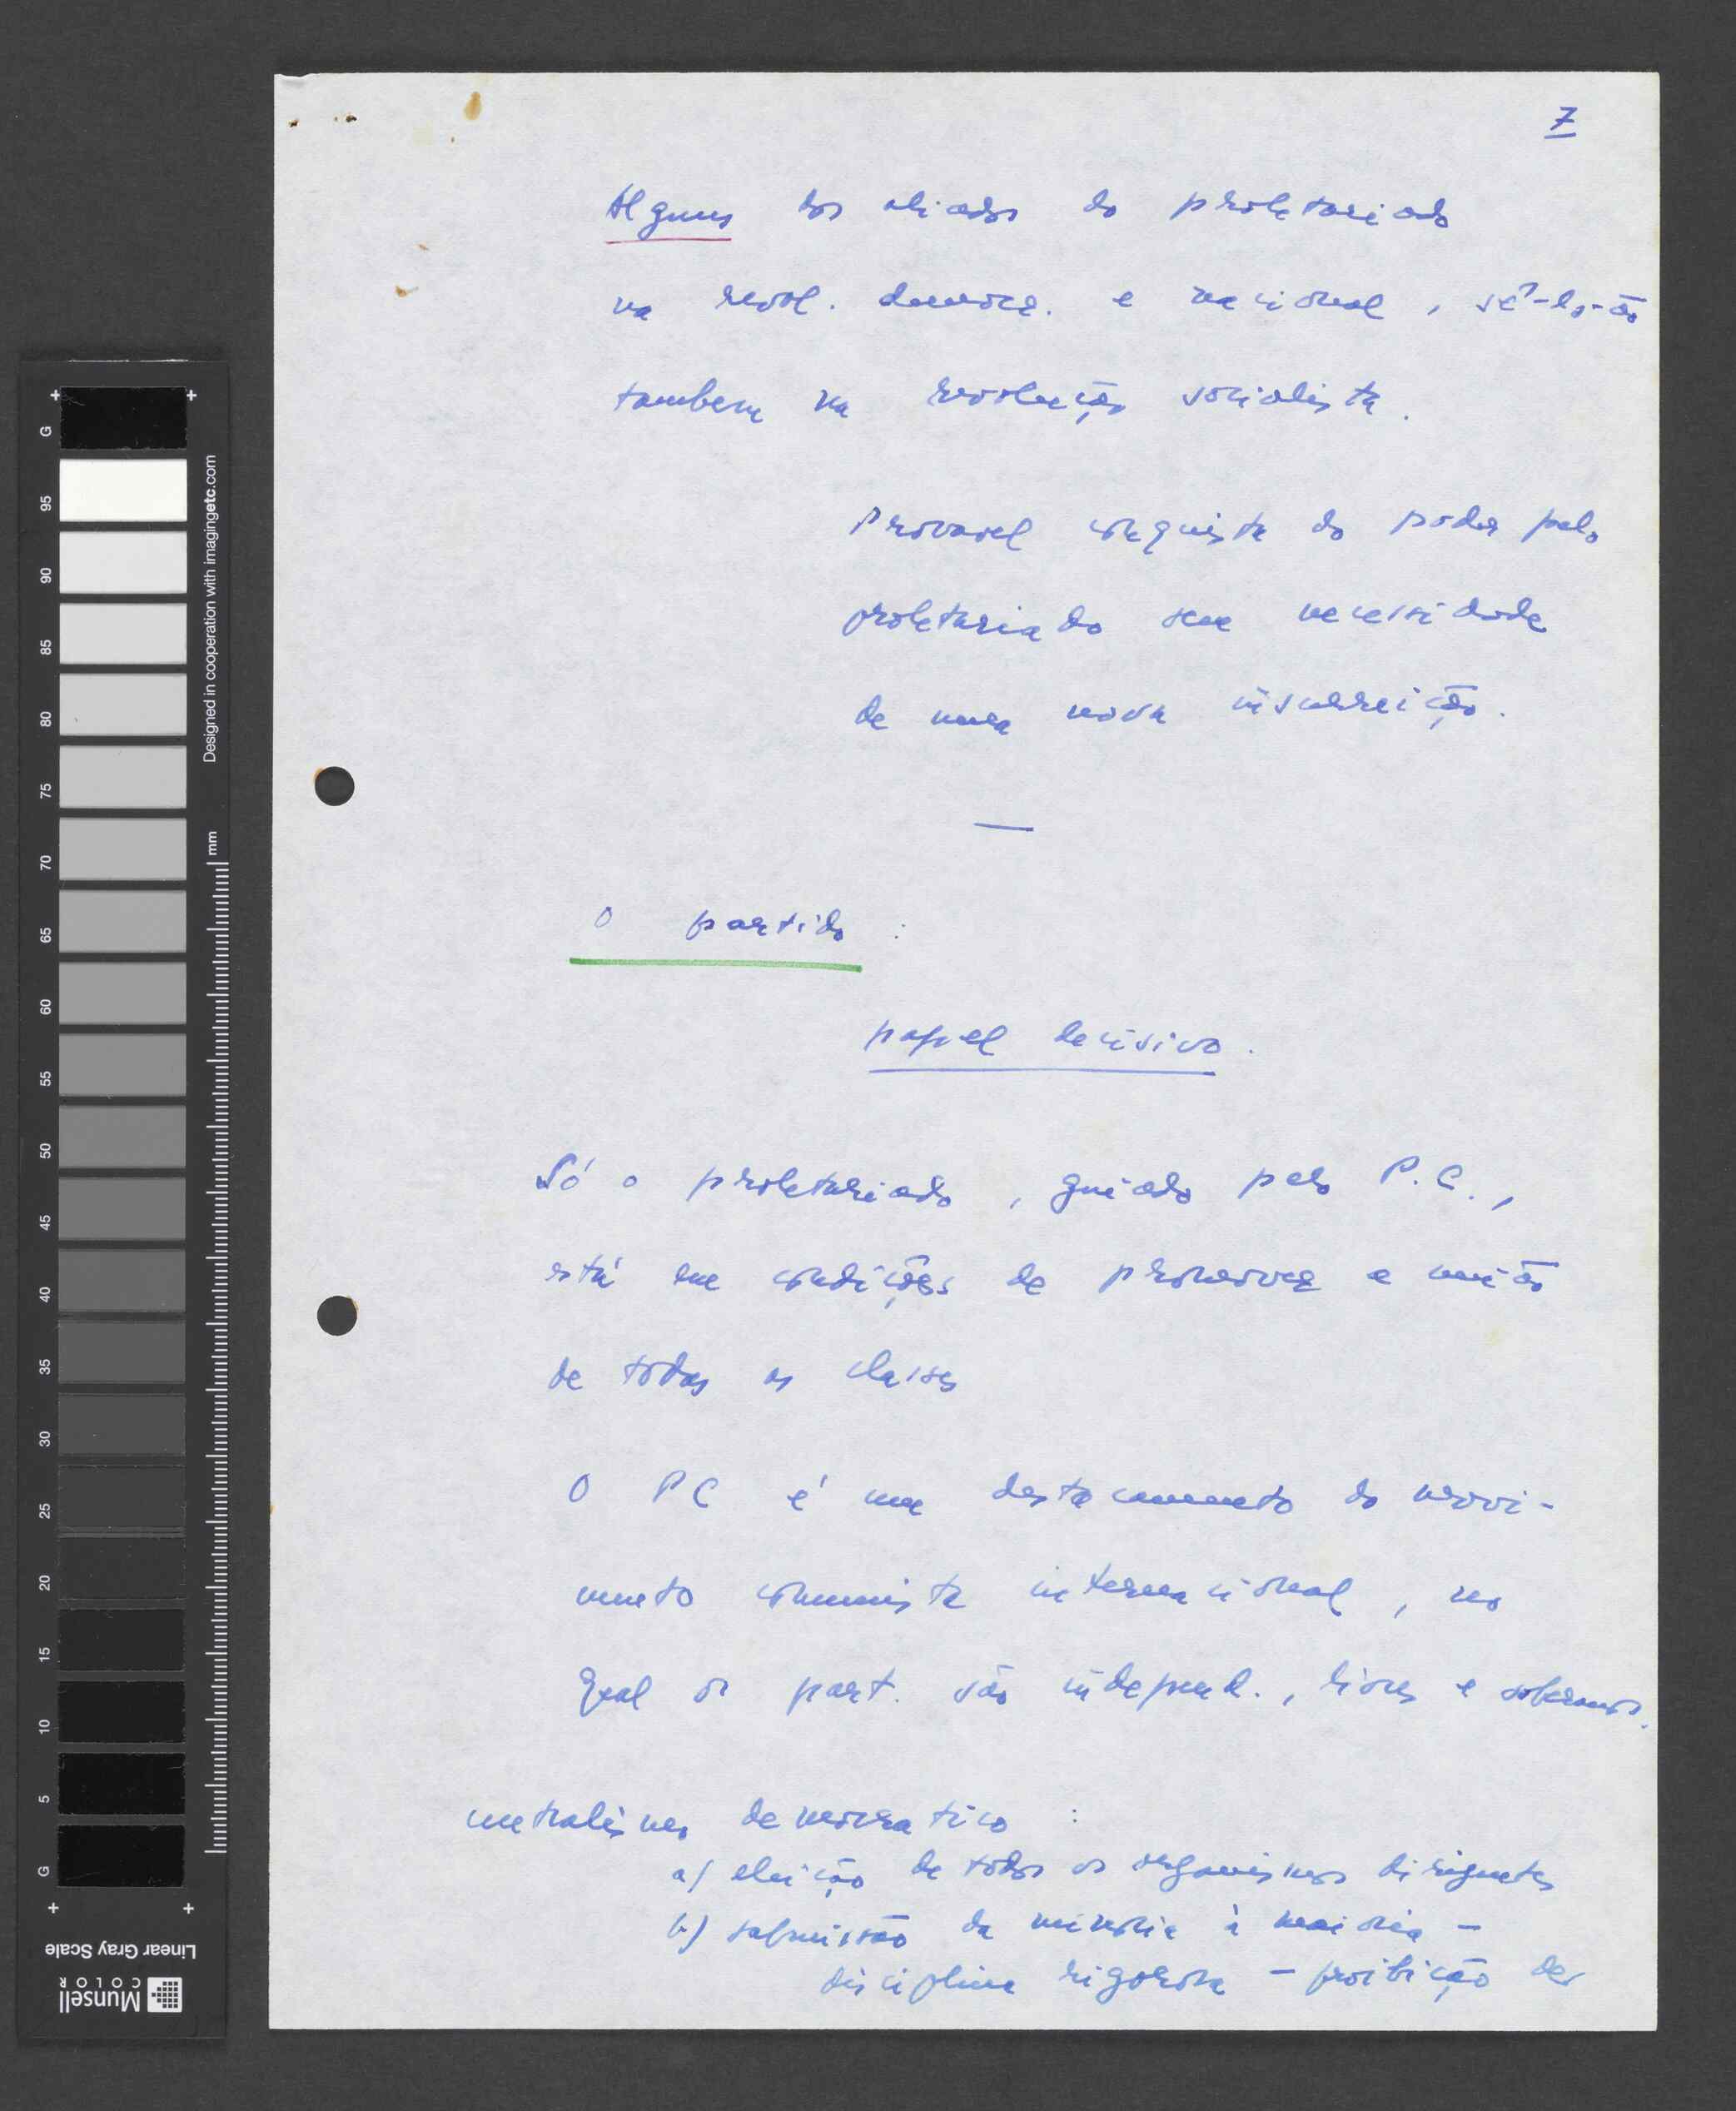 7
Alguns dos aliados do proletariado
na revol. democr. e nacional, sê-lo-ão
tambem na revolução socialista.
Provavel conquista do poder pelo
proletariado sem necessidade
de uma nova insurreição.
—
O partido :
papel decisivo.
Só o proletariado, guiado pelo P.C.,
está em condições de promover a união
de todas as classes
O PC é um destacamento do movi-
mento comunista internacional, no
qual os part. são independ., livres e soberanos.
centralismo democratico :
a) eleição de todos os organismos dirigentes
b) submissão da minoria à maioria –
disciplina rigorosa – proibição das
G
95
90
85
80
75
70
65
60
55
50
45
40
35
30
25
20
15
10
5
G
Designed in cooperation with imagingetc.com
mm
Linear Gray Scale
Munsell
COLOR